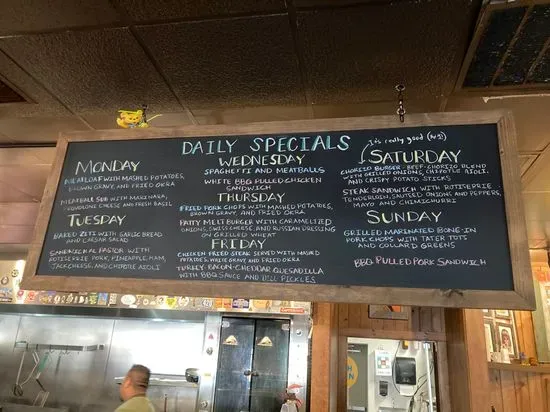 DAILY SPECIALS
MONDAY
MEATLOAF WITH MASHED POTATOES,
BROWN GRAVY, AND FRIED OKRA
MEATBALL SUB WITH MARINARA,
PROVOLONE CHEESE AND FRESH BASIL
TUESDAY
BAKED ZITI WITH GARLIC BREAD
AND CAESAR SALAD
SANDWICH AL PASTOR WITH
ROTISSERIE PORK, PINEAPPLE, HAM,
JACK CHEESE, AND CHIPOTLE AIOLI
WEDNESDAY
SPAGHETTI AND MEATBALLS
WHITE BBQ PULLED CHICKEN
SANDWICH
THURSDAY
FRIED PORK CHOPS WITH MASHED POTATOES,
BROWN GRAVY, AND FRIED OKRA
PATTY MELT BURGER WITH CARAMELIZED
ONIONS, SWISS CHEESE, AND RUSSIAN DRESSING
ON GRILLED WHEAT
FRIDAY
CHICKEN FRIED STEAK SERVED WITH MASHED
POTATOES, WHITE GRAVY AND FRIED OKRA
TURKEY-BACON-CHEDDAR QUESADILLA
WITH BBQ SAUCE AND DILL PICKLES
It's really good
SATURDAY
CHORIZO BURGER - BEEF-CHORIZO BLEND
WITH GRILLED ONIONS, CHIPOTLE AIOLI,
AND CRISPY POTATO STICKS
STEAK SANDWICH WITH ROTISSERIE
TENDERLOIN, SAUTEED ONIONS AND PEPPERS,
MAYO AND CHIMICHURRI
SUNDAY
GRILLED MARINATED BONE-IN
PORK CHOPS WITH TATER TOTS
AND COLLARD GREENS
BBQ PULLED PORK SANDWICH